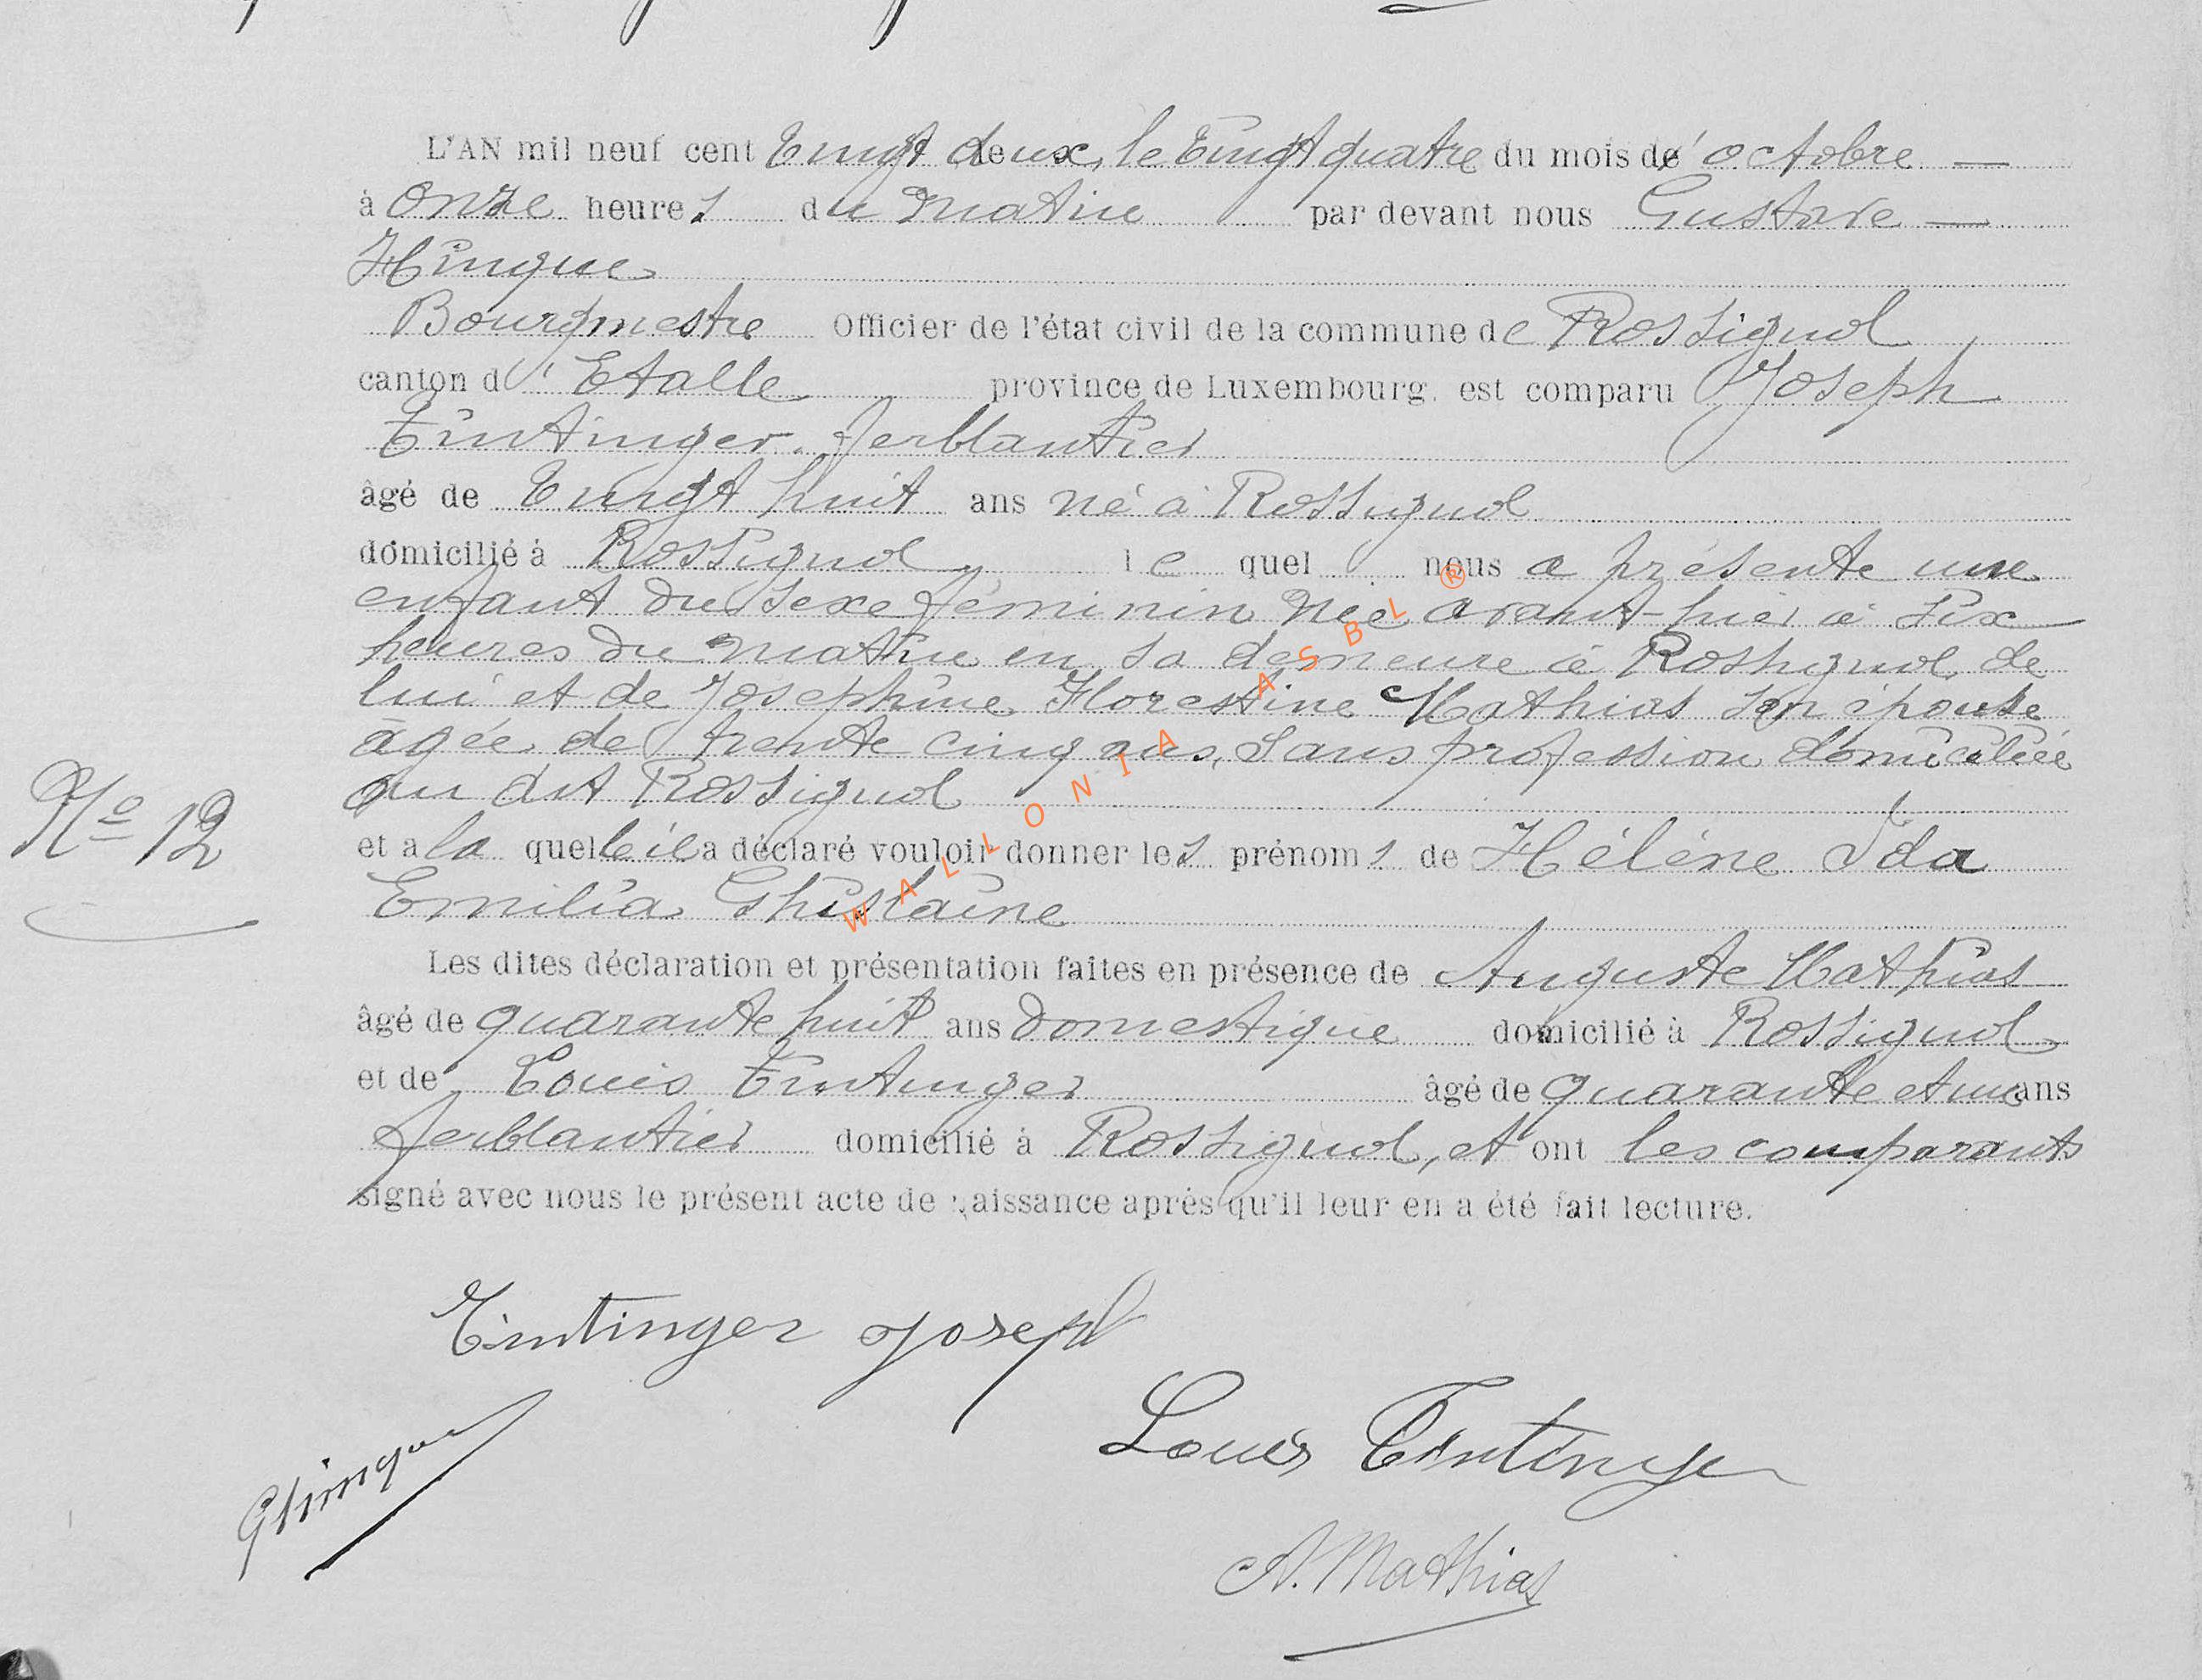 L'AN mil neuf cent vingt deux, le vingt quatre du mois d'octobre —
à onze heures du matin par devant nous Gustave —
Hinque
Bourgmestre Officier de l'état civil de la commune de Rossignol
canton d'Etalle province de Luxembourg, est comparu Joseph
Tintinger, ferblantier
âgé de vingt huit ans né à Rossignol
domicilié à Rossignol, lequel nous a présenté une
enfant du sexe féminin née avant-hier à six
heures du matin en sa demeure à Rossignol de
lui et de Joséphine Florestine Mathias son épouse
âgée de trente cinq ans, sans profession domiciliée
au dit Rossignol
No 12
et a laquelle il a déclaré vouloir donner les prénoms de Hélène Ida
Emilia Ghislaine
Les dites déclaration et présentation faites en présence de Auguste Mathias
âgé de quarante huit ans domestique domicilié à Rossignol
et de Louis Tintinger âgé de quarante et un ans
ferblantier domicilié à Rossignol, et ont les comparants
signé avec nous le présent acte de naissance après qu'il leur en a été fait lecture.
Tintinger Joseph
Louis Tintinger
GHinque
A. Mathias
WALLONIA ASBL ®